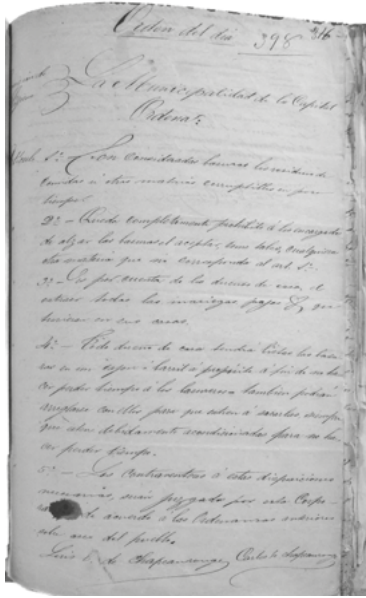 Orden del dia 398 316
La Municipalidad de la Capital
Ordena:
1º - Son consideradas basuras los residuos de
comidas ú otras materias corruptibles en poco
tiempo.
2º - Queda completamente prohibido á los encargados
de alzar las basuras, el aceptar, como tales, cualquiera
otra materia que no corresponda al art. 1º.
3º - Es por cuenta de los dueños de casa, el
extraer todas las
tuvieren en sus casas.
4º - Todo dueño de casa tendrá listas las basu-
ras en un cajon ó barril á propósito á fin de no ha-
cer perder tiempo á los basureros tambien podrán
con ellos para que entren á sacarlas, siempre
que esten debidamente acondicionadas para no ha-
cer perder tiempo.
5º - Los Contraventores á estas disposiciones
necesarias, serán juzgados por esta Corpo-
de acuerdo á las Ordenanzas anteriores
sobre aseo del pueblo.
Luis E. de Chapeaurouge Carlos